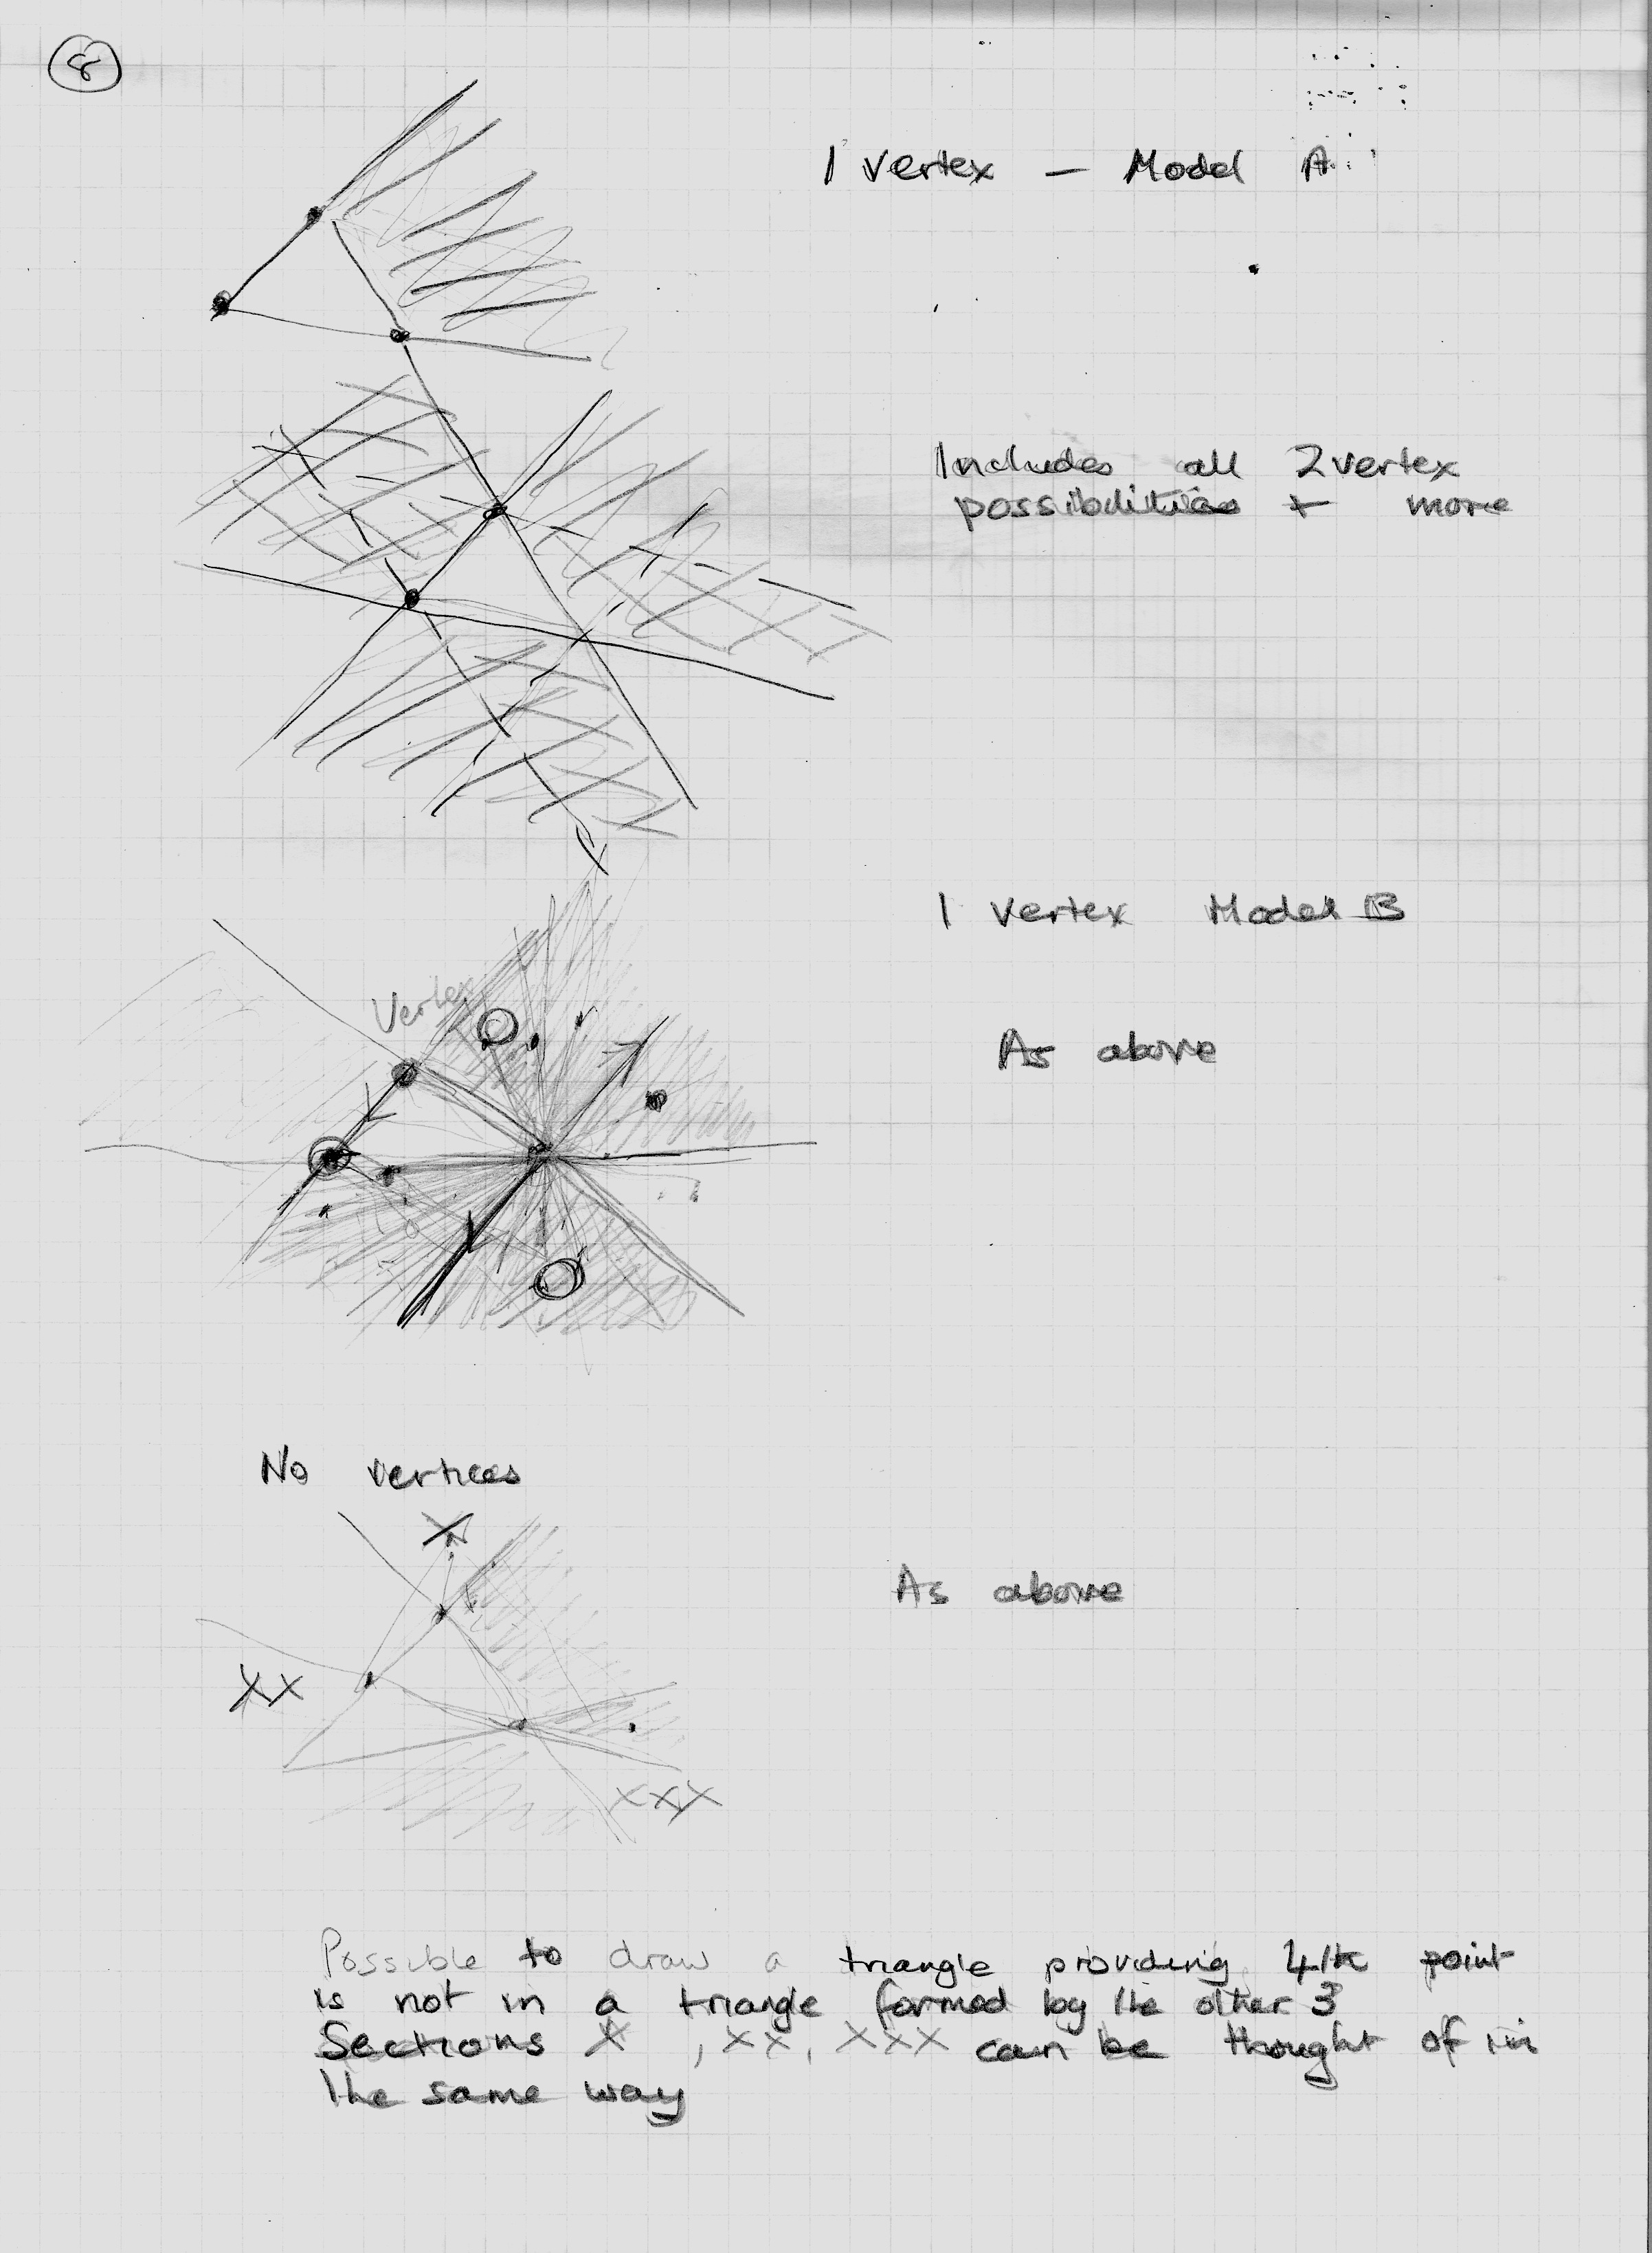 8
1 Vertex — Model A
Includes all 2 vertex
possibilities + more
1 Vertex Model B
Vertex
As above
No vertices
X
As above
XX
XXX
Possible to draw a triangle providing 4th point
is not in a triangle formed by the other 3
Sections X , XX, XXX can be thought of in
the same way